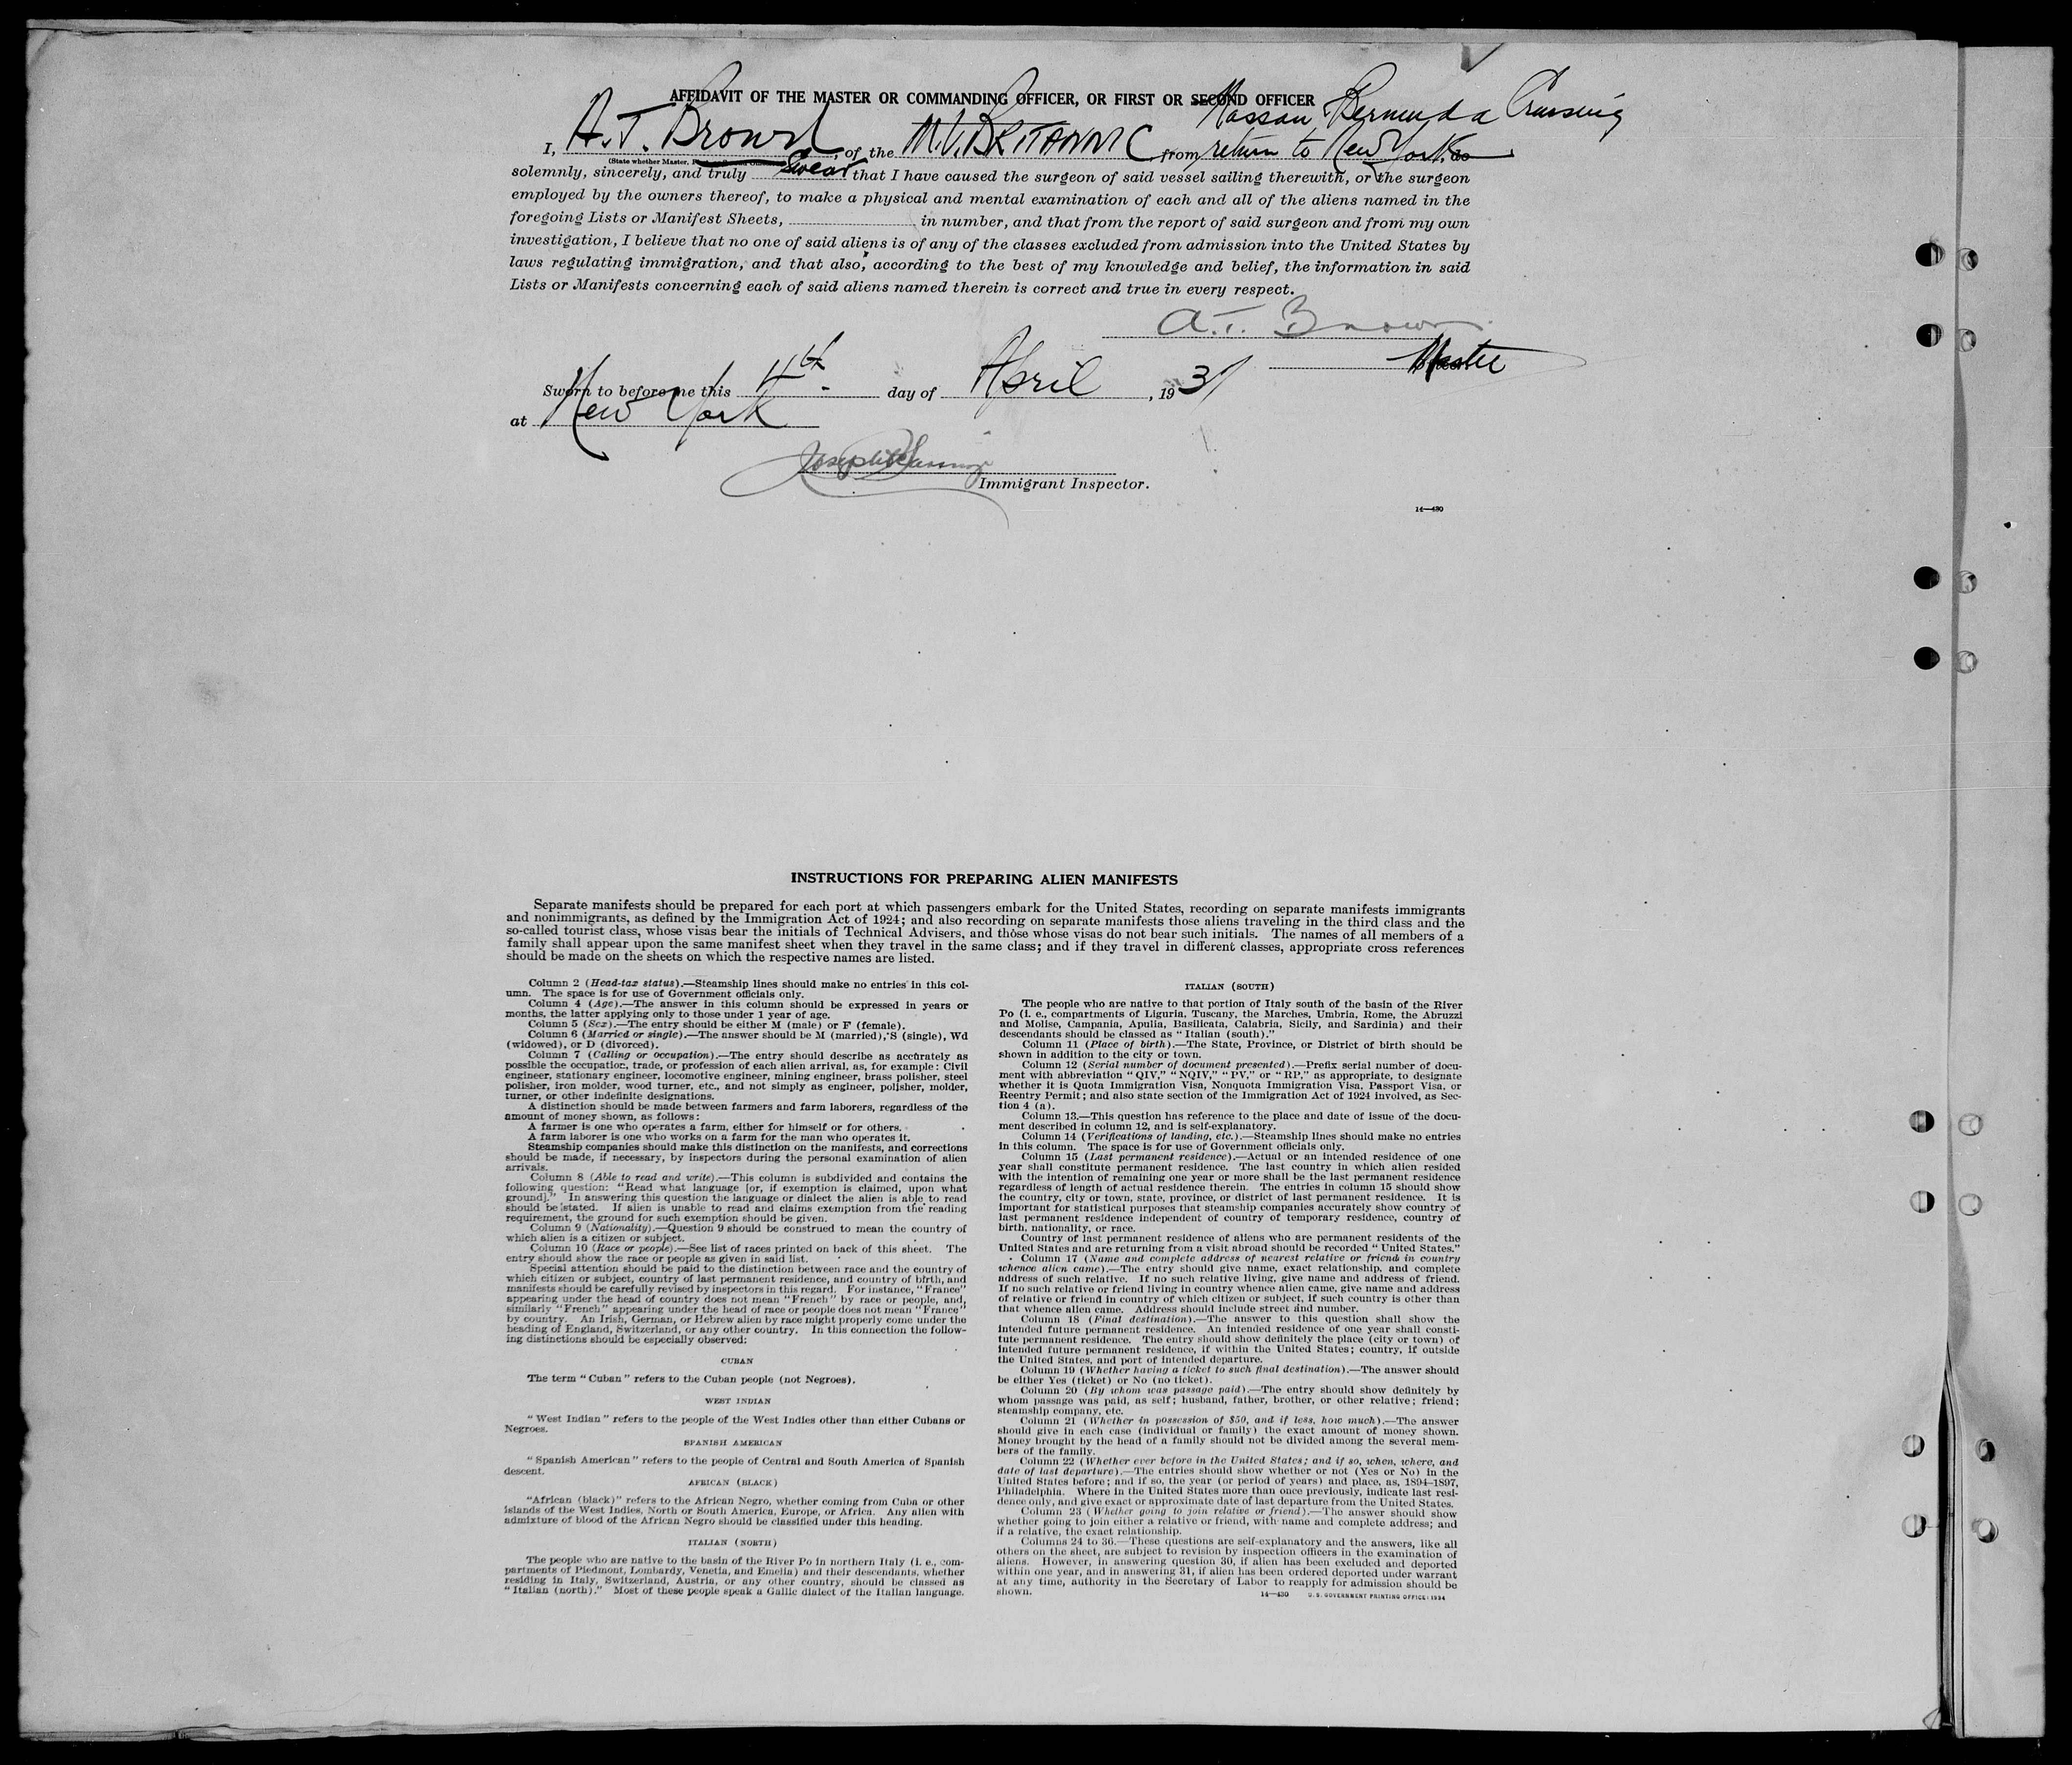 AFFIDAVIT OF THE MASTER OR COMMANDING OFFICER, OR FIRST OR SECOND OFFICER
Nassau Bermuda Cruising
I, A. T. Brown, of the M.V. BRITANNIC from return to New York, do
(State whether Master,
solemnly, sincerely, and truly Swear that I have caused the surgeon of said vessel sailing therewith, or the surgeon
employed by the owners thereof, to make a physical and mental examination of each and all of the aliens named in the
foregoing Lists or Manifest Sheets, in number, and that from the report of said surgeon and from my own
investigation, I believe that no one of said aliens is of any of the classes excluded from admission into the United States by
laws regulating immigration, and that also, according to the best of my knowledge and belief, the information in said
Lists or Manifests concerning each of said aliens named therein is correct and true in every respect.
A. T. Brown
Master
Sworn to before me this 4th day of April, 193
at New York
Joseph
Immigrant Inspector.
14—430
INSTRUCTIONS FOR PREPARING ALIEN MANIFESTS
Separate manifests should be prepared for each port at which passengers embark for the United States, recording on separate manifests immigrants
and nonimmigrants, as defined by the Immigration Act of 1924; and also recording on separate manifests those aliens traveling in the third class and the
so-called tourist class, whose visas bear the initials of Technical Advisers, and those whose visas do not bear such initials. The names of all members of a
family shall appear upon the same manifest sheet when they travel in the same class; and if they travel in different classes, appropriate cross references
should be made on the sheets on which the respective names are listed.
Column 2 (Head-tax status).—Steamship lines should make no entries in this col-
umn. The space is for use of Government officials only.
Column 4 (Age).—The answer in this column should be expressed in years or
months, the latter applying only to those under 1 year of age.
Column 5 (Sex).—The entry should be either M (male) or F (female).
Column 6 (Married or single).—The answer should be M (married), S (single), Wd
(widowed), or D (divorced).
Column 7 (Calling or occupation).—The entry should describe as accurately as
possible the occupation, trade, or profession of each alien arrival, as, for example: Civil
engineer, stationary engineer, locomotive engineer, mining engineer, brass polisher, steel
polisher, iron molder, wood turner, etc., and not simply as engineer, polisher, molder,
turner, or other indefinite designations.
A distinction should be made between farmers and farm laborers, regardless of the
amount of money shown, as follows:
A farmer is one who operates a farm, either for himself or for others.
A farm laborer is one who works on a farm for the man who operates it.
Steamship companies should make this distinction on the manifests, and corrections
should be made, if necessary, by inspectors during the personal examination of alien
arrivals.
Column 8 (Able to read and write).—This column is subdivided and contains the
following question: "Read what language [or, if exemption is claimed, upon what
ground]." In answering this question the language or dialect the alien is able to read
should be stated. If alien is unable to read and claims exemption from the reading
requirement, the ground for such exemption should be given.
Column 9 (Nationality).—Question 9 should be construed to mean the country of
which alien is a citizen or subject.
Column 10 (Race or people).—See list of races printed on back of this sheet. The
entry should show the race or people as given in said list.
Special attention should be paid to the distinction between race and the country of
which citizen or subject, country of last permanent residence, and country of birth, and
manifests should be carefully revised by inspectors in this regard. For instance, "France"
appearing under the head of country does not mean "French" by race or people, and,
similarly "French" appearing under the head of race or people does not mean "France"
by country. An Irish, German, or Hebrew alien by race might properly come under the
heading of England, Switzerland, or any other country. In this connection the follow-
ing distinctions should be especially observed:
CUBAN
The term "Cuban" refers to the Cuban people (not Negroes).
WEST INDIAN
"West Indian" refers to the people of the West Indies other than either Cubans or
Negroes.
SPANISH AMERICAN
"Spanish American" refers to the people of Central and South America of Spanish
descent.
AFRICAN (BLACK)
"African (black)" refers to the African Negro, whether coming from Cuba or other
islands of the West Indies, North or South America, Europe, or Africa. Any alien with
admixture of blood of the African Negro should be classified under this heading.
ITALIAN (NORTH)
The people who are native to the basin of the River Po in northern Italy (i. e., com-
partments of Piedmont, Lombardy, Venetia, and Emelia) and their descendants, whether
residing in Italy, Switzerland, Austria, or any other country, should be classed as
"Italian (north)." Most of these people speak a Gallic dialect of the Italian language.
ITALIAN (SOUTH)
The people who are native to that portion of Italy south of the basin of the River
Po (i. e., compartments of Liguria, Tuscany, the Marches, Umbria, Rome, the Abruzzi
and Molise, Campania, Apulia, Basilicata, Calabria, Sicily, and Sardinia) and their
descendants should be classed as "Italian (south)."
Column 11 (Place of birth).—The State, Province, or District of birth should be
shown in addition to the city or town.
Column 12 (Serial number of document presented).—Prefix serial number of docu-
ment with abbreviation "QIV," "NQIV," "PV," or "RP," as appropriate, to designate
whether it is Quota Immigration Visa, Nonquota Immigration Visa, Passport Visa, or
Reentry Permit; and also state section of the Immigration Act of 1924 involved, as Sec-
tion 4 (a).
Column 13.—This question has reference to the place and date of issue of the docu-
ment described in column 12, and is self-explanatory.
Column 14 (Verifications of landing, etc.).—Steamship lines should make no entries
in this column. The space is for use of Government officials only.
Column 15 (Last permanent residence).—Actual or an intended residence of one
year shall constitute permanent residence. The last country in which alien resided
with the intention of remaining one year or more shall be the last permanent residence
regardless of length of actual residence therein. The entries in column 15 should show
the country, city or town, state, province, or district of last permanent residence. It is
important for statistical purposes that steamship companies accurately show country of
last permanent residence independent of country of temporary residence, country of
birth, nationality, or race.
Country of last permanent residence of aliens who are permanent residents of the
United States and are returning from a visit abroad should be recorded "United States."
Column 17 (Name and complete address of nearest relative or friend in country
whence alien came).—The entry should give name, exact relationship, and complete
address of such relative. If no such relative living, give name and address of friend.
If no such relative or friend living in country whence alien came, give name and address
of relative or friend in country of which citizen or subject, if such country is other than
that whence alien came. Address should include street and number.
Column 18 (Final destination).—The answer to this question shall show the
intended future permanent residence. An intended residence of one year shall consti-
tute permanent residence. The entry should show definitely the place (city or town) of
intended future permanent residence, if within the United States; country, if outside
the United States, and port of intended departure.
Column 19 (Whether having a ticket to such final destination).—The answer should
be either Yes (ticket) or No (no ticket).
Column 20 (By whom was passage paid).—The entry should show definitely by
whom passage was paid, as self; husband, father, brother, or other relative; friend;
steamship company, etc.
Column 21 (Whether in possession of $50, and if less, how much).—The answer
should give in each case (individual or family) the exact amount of money shown.
Money brought by the head of a family should not be divided among the several mem-
bers of the family.
Column 22 (Whether ever before in the United States; and if so, when, where, and
date of last departure).—The entries should show whether or not (Yes or No) in the
United States before; and if so, the year (or period of years) and place, as, 1894–1897,
Philadelphia. Where in the United States more than once previously, indicate last resi-
dence only, and give exact or approximate date of last departure from the United States.
Column 23 (Whether going to join relative or friend).—The answer should show
whether going to join either a relative or friend, with name and complete address; and
if a relative, the exact relationship.
Columns 24 to 36.—These questions are self-explanatory and the answers, like all
others on the sheet, are subject to revision by inspection officers in the examination of
aliens. However, in answering question 30, if alien has been excluded and deported
within one year, and in answering 31, if alien has been ordered deported under warrant
at any time, authority in the Secretary of Labor to reapply for admission should be
shown.
14—430 U. S. GOVERNMENT PRINTING OFFICE: 1934